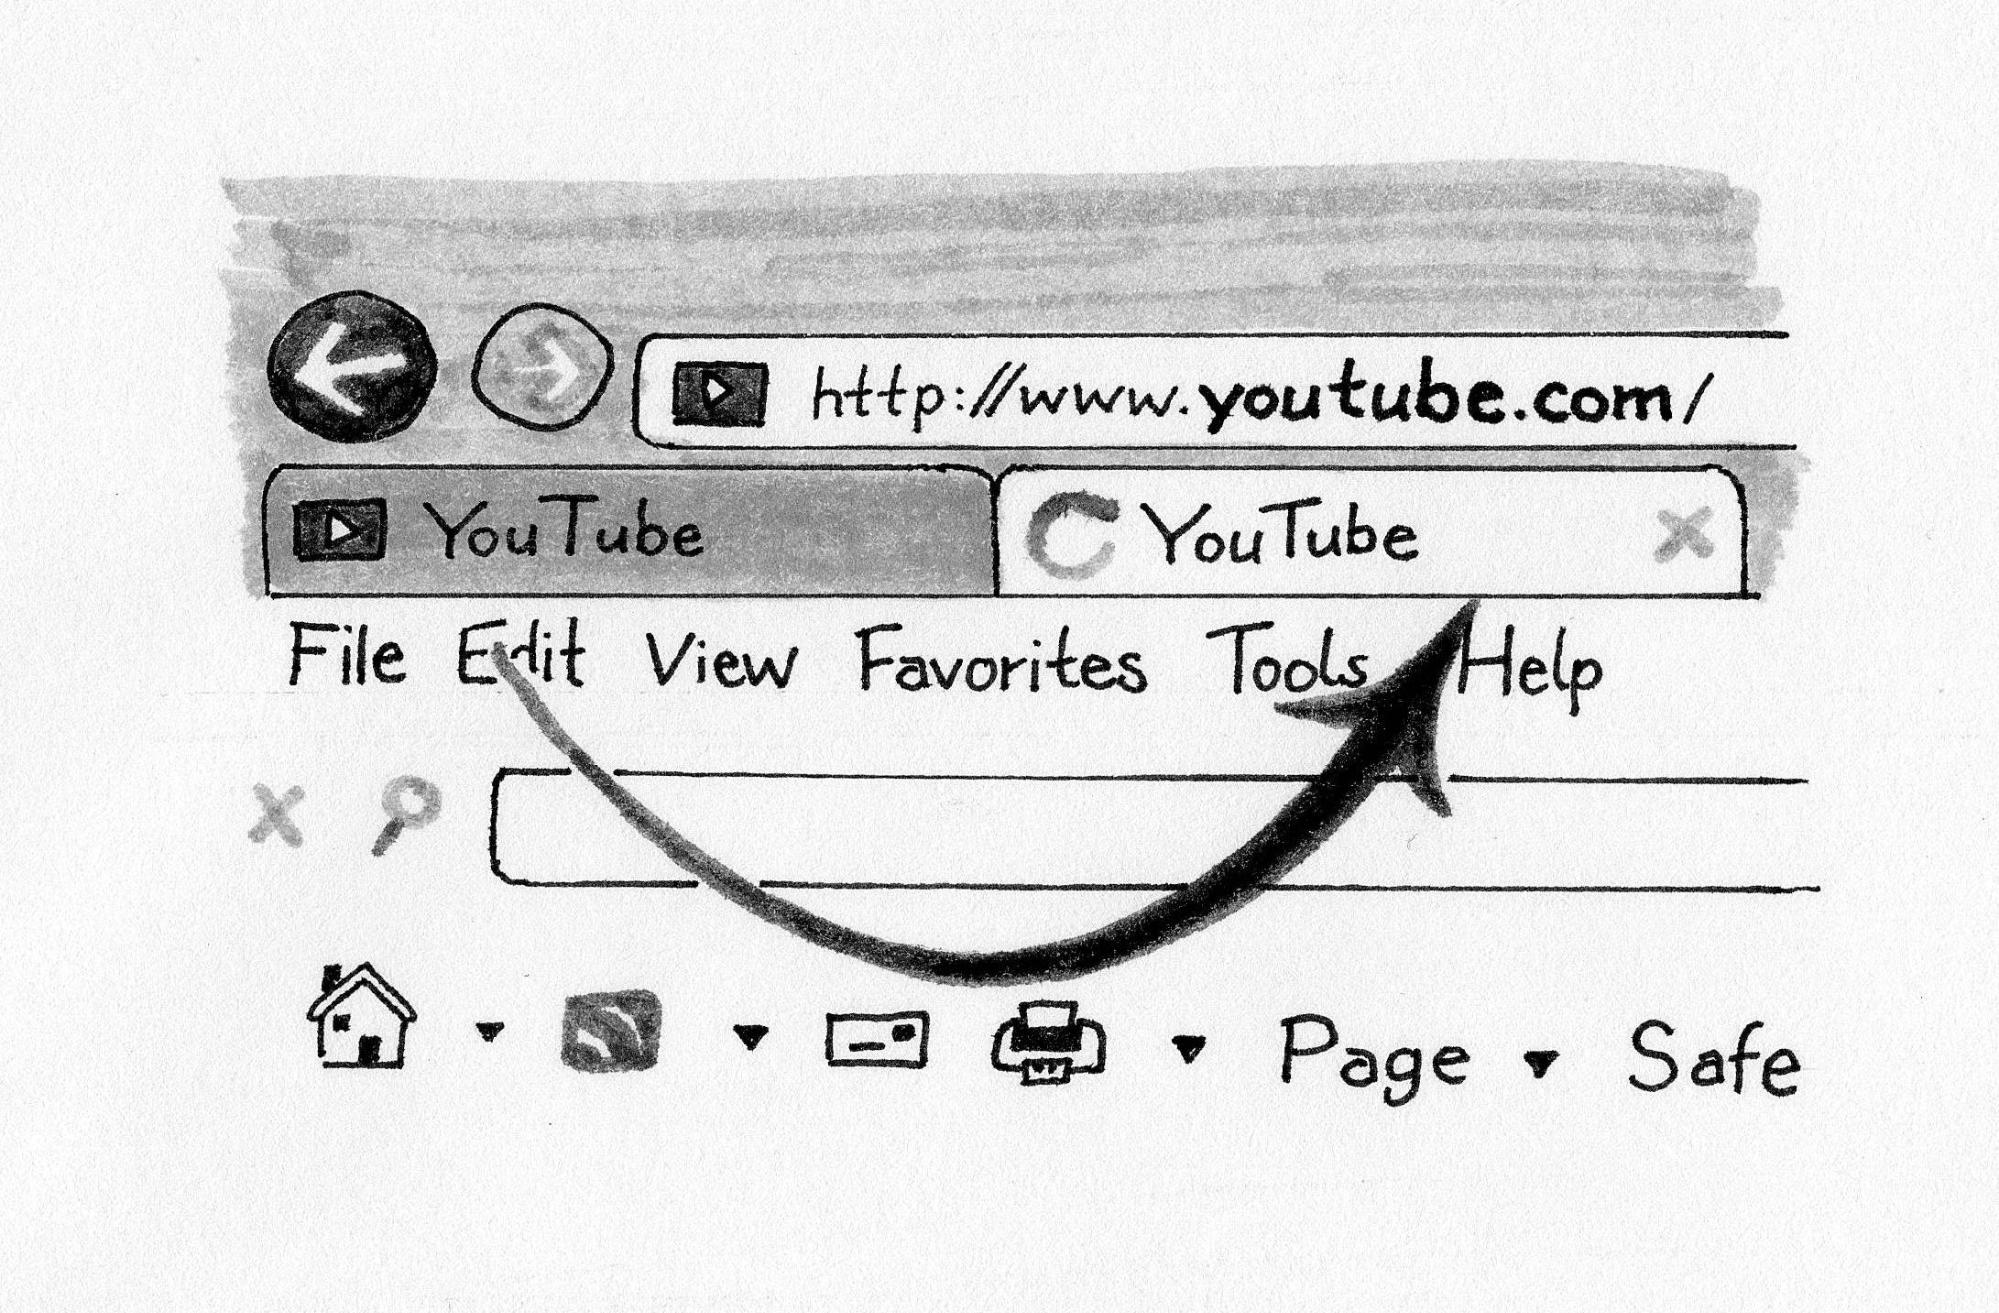 http://www.youtube.com/
YouTube YouTube
File Edit View Favorites Tools Help
Page Safe